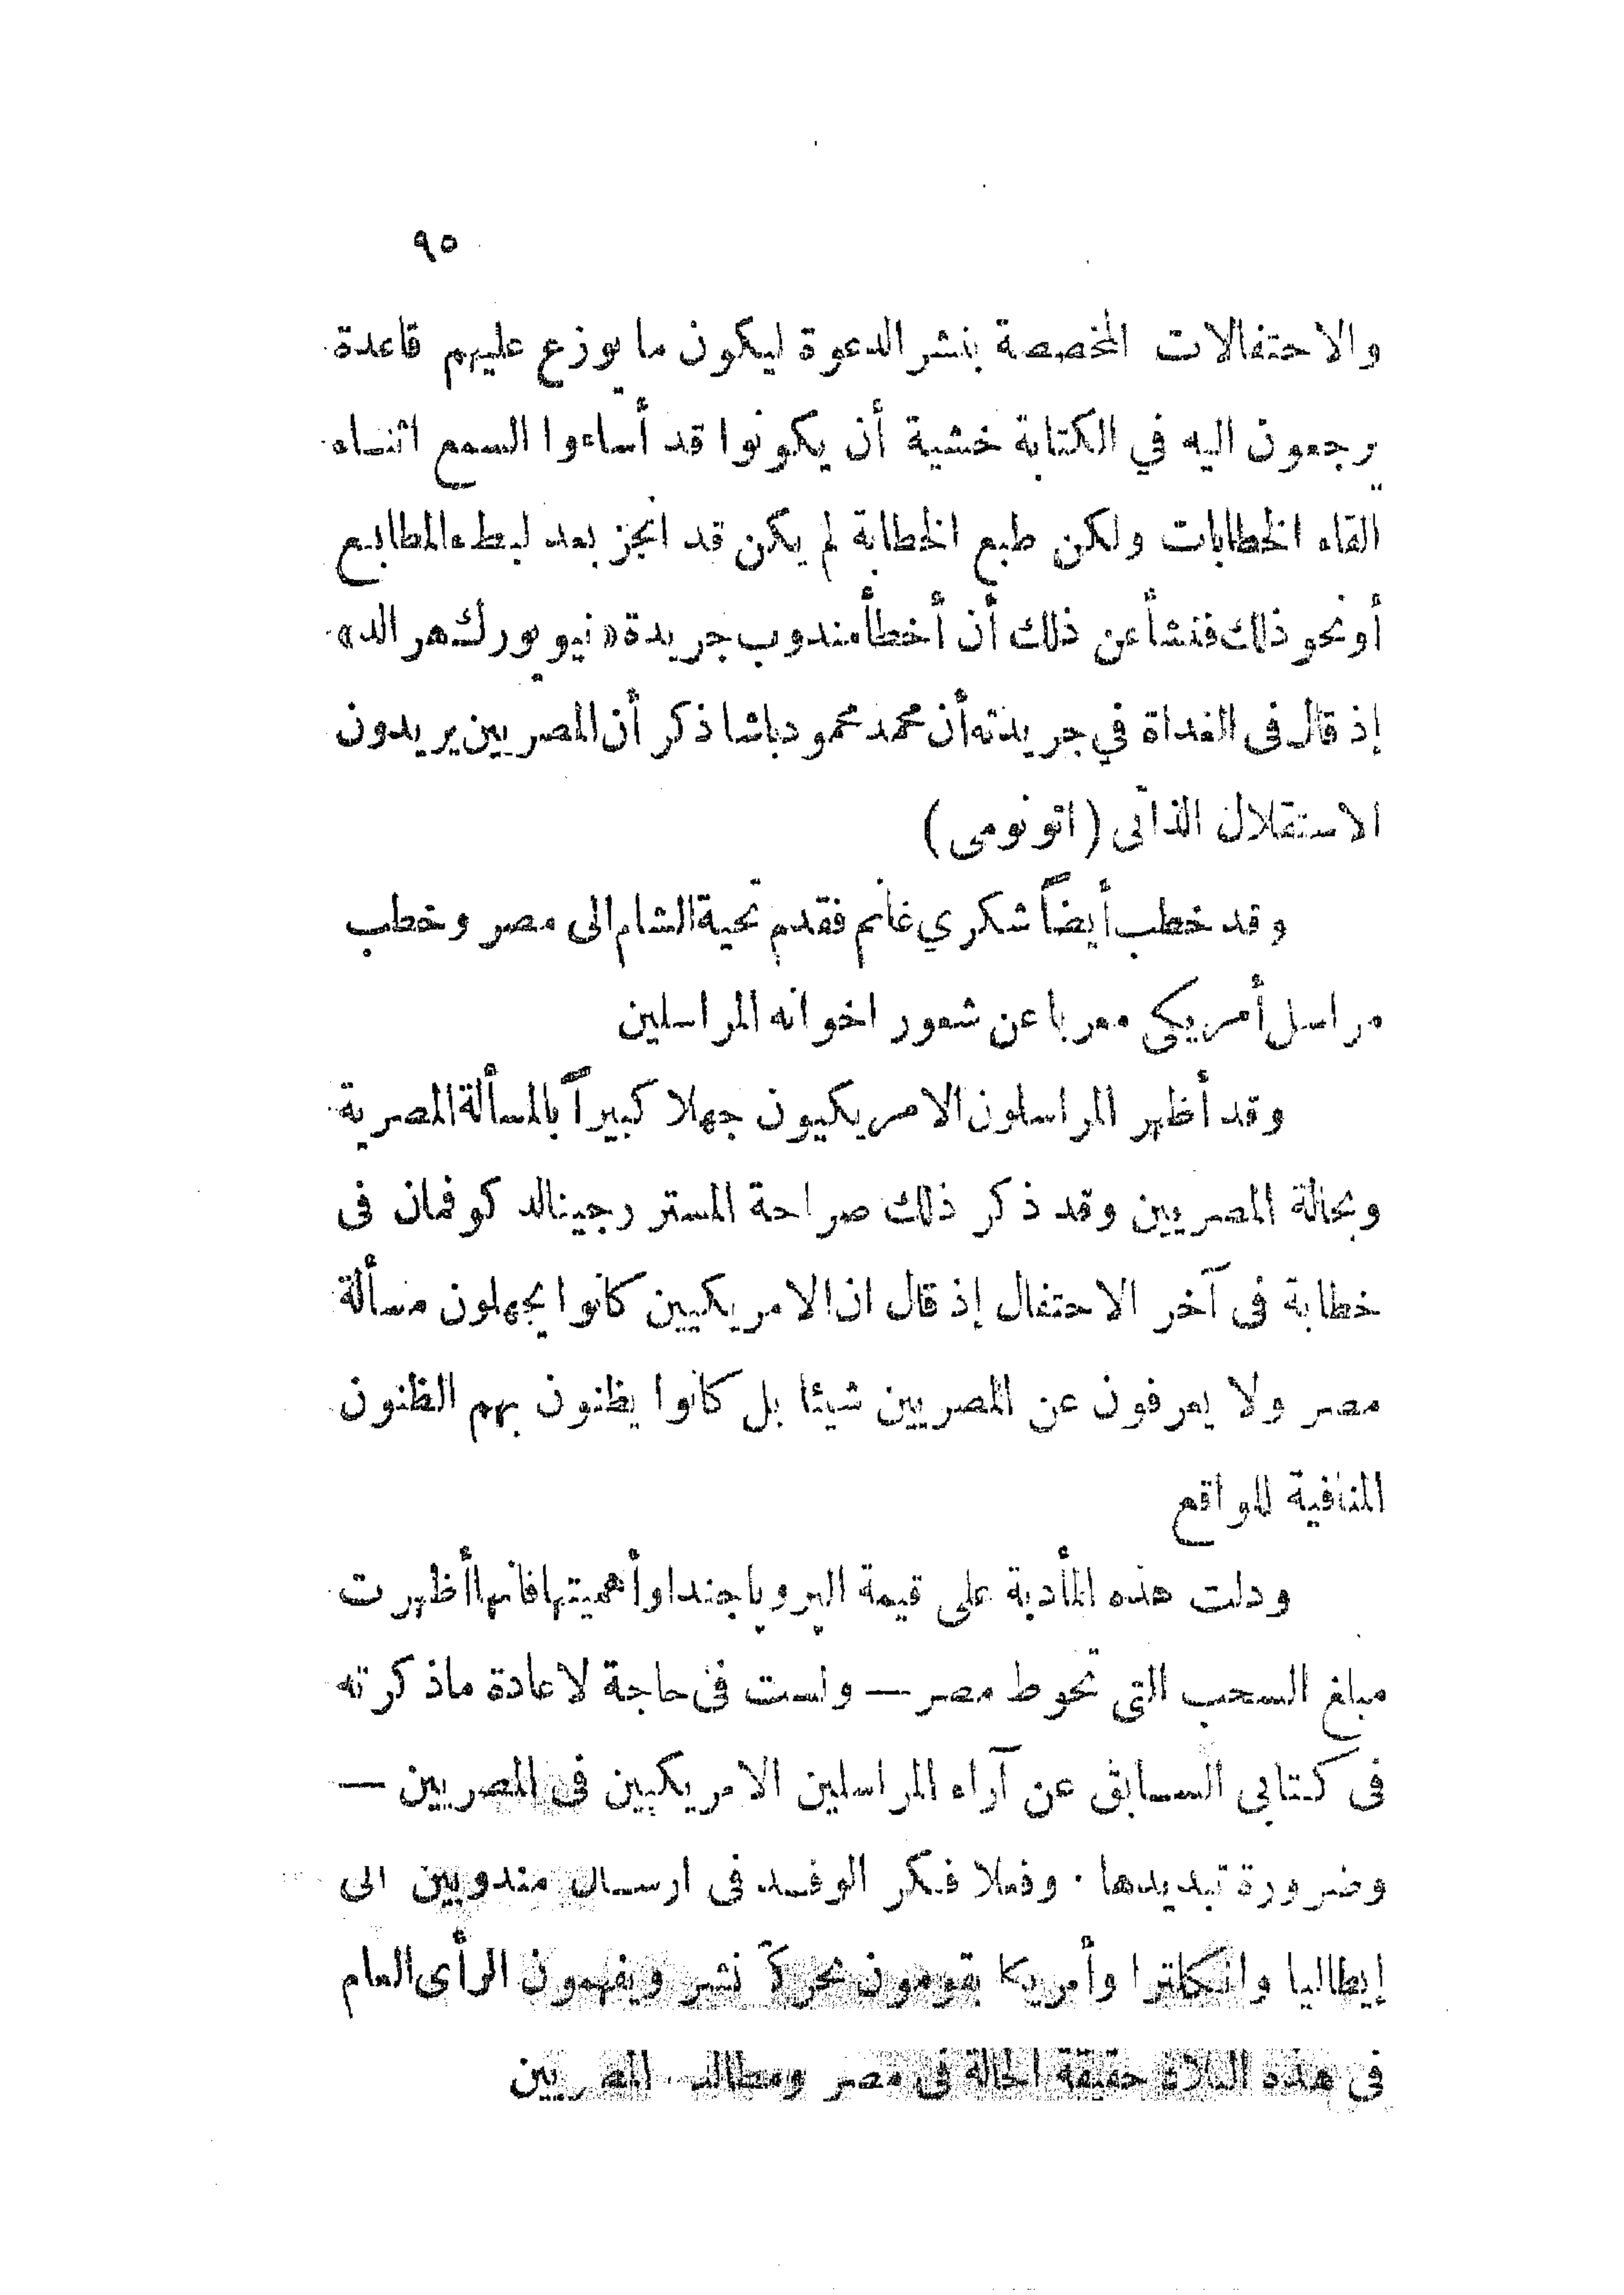 ٩٥
والاحتفالات المخصصة بنشر الدعوة ليكون ما يوزع عليهم قاعدة
يرجعون اليه في الكتابة خشية أن يكونوا قد أساءوا السمع اثناء
القاء الخطابات ولكن طبع الخطابة لم يكن قد انجز بعد لبطء المطابع
أو نحو ذلك فنشأ عن ذلك أن أخطأ مندوب جريدة «نيو يورك هرالد»
إذ قال فى الغداة في جريدته أن محمد محمود باشا ذكر أن المصريين يريدون
الاستقلال الذاتى (اتونومى)
وقد خطب أيضاً شكري غانم فقدم تحية الشام الى مصر وخطب
مراسل أمريكى معربا عن شعور اخوانه المراسلين
وقد أظهر المراسلون الامريكيون جهلا كبيراً بالمسألة المصرية
وبحالة المصريين وقد ذكر ذلك صراحة المستر رجينالد كوفمان فى
خطابة فى آخر الاحتفال إذ قال ان الامريكيين كانوا يجهلون مسألة
مصر ولا يعرفون عن المصريين شيئا بل كانوا يظنون بهم الظنون
المنافية للواقع
ودلت هذه المأدبة على قيمة البروباجندا وأهميتها فانها أظهرت
مبلغ السحب التى تحوط مصر — ولست فى حاجة لاعادة ماذكرته
فى كتابى السابق عن آراء المراسلين الامريكيين فى المصريين —
وضرورة تبديدها . وفعلا فكر الوفد فى ارسال مندوبين الى
إيطاليا وانكلترا وأمريكا يقومون بحركة نشر ويفهمون الرأى العام
فى هذه البلاد حقيقة الحالة فى مصر ومطالب المصريين